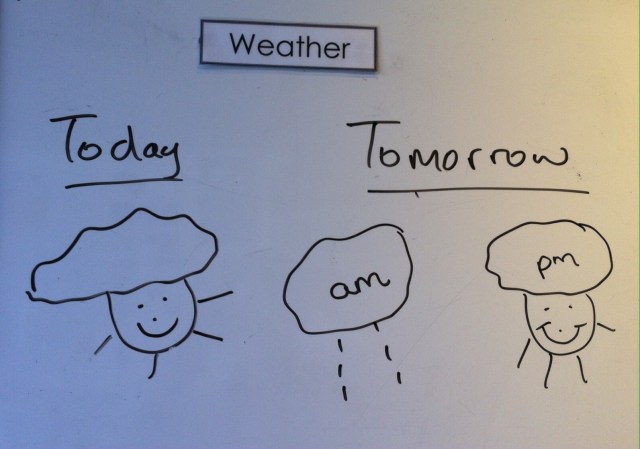 Weather
Today
Tomorrow
am
pm